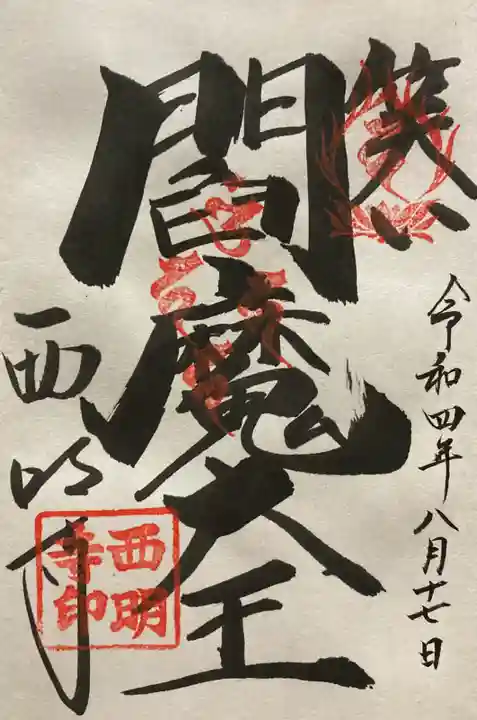 令和四年八月十七日
笑い
閻魔大王
西明寺
西明
寺印